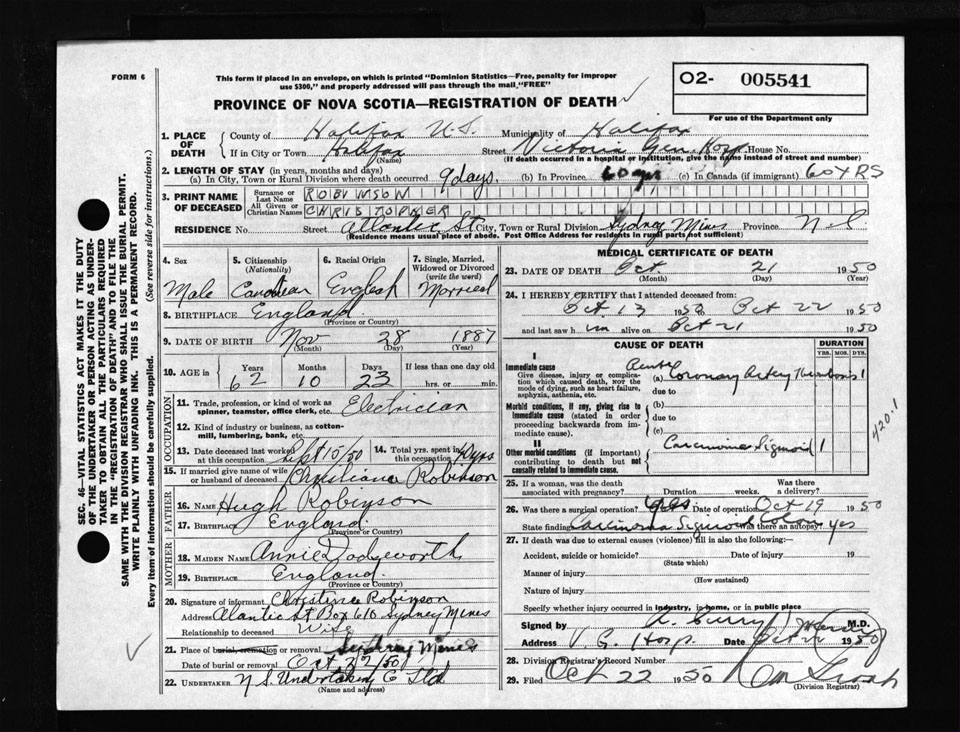 FORM 6
This form if placed in an envelope, on which is printed "Dominion Statistics—Free, penalty for improper
use $300," and properly addressed will pass through the mail, "FREE"
O2- 005541
For use of the Department only
PROVINCE OF NOVA SCOTIA—REGISTRATION OF DEATH
1. PLACE OF DEATH County of Halifax N.S. Municipality of Halifax
If in City or Town Halifax (Name) Street Victoria Gen. Hosp. House No.
(If death occurred in a hospital or institution, give the name instead of street and number)
2. LENGTH OF STAY (in years, months and days)
(a) In City, Town or Rural Division where death occurred 9 days. (b) In Province 60 yrs (c) In Canada (if immigrant) 60 YRS
3. PRINT NAME OF DECEASED Surname or Last Name ROBINSON
All Given or Christian Names CHRISTOPHER
RESIDENCE No. Street Atlantic St City, Town or Rural Division Sydney Mines Province N-S
(Residence means usual place of abode. Post Office Address for residents in rural parts not sufficient)
4. Sex Male
5. Citizenship (Nationality) Canadian
6. Racial Origin English
7. Single, Married, Widowed or Divorced (write the word) Married
8. BIRTHPLACE England (Province or Country)
9. DATE OF BIRTH Nov (Month) 28 (Day) 1887 (Year)
10. AGE in Years 62 Months 10 Days 23 If less than one day old hrs. or min.
OCCUPATION
11. Trade, profession, or kind of work as spinner, teamster, office clerk, etc. Electrician
12. Kind of industry or business, as cotton-mill, lumbering, bank, etc.
13. Date deceased last worked at this occupation Sept 15/50 14. Total yrs. spent in this occupation
15. If married give name of wife or husband of deceased Christiana Robinson
FATHER
16. Name Hugh Robinson
17. BIRTHPLACE England (Province or Country)
MOTHER
18. MAIDEN NAME Annie Dodgworth
19. BIRTHPLACE England. (Province or Country)
20. Signature of informant Christine Robinson
Address Atlantic St Box 610 Sydney Mines
Relationship to deceased Wife
21. Place of burial, cremation or removal Sydney Mines
Date of burial or removal Oct 22/50
22. UNDERTAKER N.S. Undertaking C Ltd
(Name and address)
MEDICAL CERTIFICATE OF DEATH
23. DATE OF DEATH Oct. (Month) 21 (Day) 1950 (Year)
24. I HEREBY CERTIFY that I attended deceased from:
Oct 13 1950 to Oct 22 1950
and last saw h im alive on Oct 21 1950
CAUSE OF DEATH DURATION
YRS. MOS. DYS.
I
Immediate cause
Give disease, injury or complication which caused death, NOT the mode of dying, such as heart failure, asphyxia, asthenia, etc.
(a) Acute Coronary Artery Thrombosis 1
due to
Morbid conditions, if any, giving rise to immediate cause (stated in order proceeding backwards from immediate cause).
(b)
due to
(c)
420.1
II
Other morbid conditions (if important) contributing to death but not causally related to immediate cause.
Carcinoma Sigmoid 1
25. If a woman, was the death associated with pregnancy? Duration weeks. Was there a delivery?
26. Was there a surgical operation? Yes Date of operation Oct 19 1950
State findings Carcinoma Sigmoid Colon Was there an autopsy? yes
27. If death was due to external causes (violence) fill in also the following:
Accident, suicide or homicide? (State which) Date of injury 19
Manner of injury (How sustained)
Nature of injury
Specify whether injury occurred in industry, in home, or in public place
Signed by M.D.
Address V. G. Hosp. Date Oct 22 1950
28. Division Registrar's Record Number
29. Filed Oct 22 1950
(Division Registrar)
SEC. 46—VITAL STATISTICS ACT MAKES IT THE DUTY
OF THE UNDERTAKER OR PERSON ACTING AS UNDERTAKER TO OBTAIN ALL THE PARTICULARS REQUIRED
IN THE "REGISTRATION OF DEATH" AND TO FILE THE
SAME WITH THE DIVISION REGISTRAR WHO SHALL ISSUE THE BURIAL PERMIT.
WRITE PLAINLY WITH UNFADING INK. THIS IS A PERMANENT RECORD.
Every item of information should be carefully supplied. (See reverse side for instructions.)